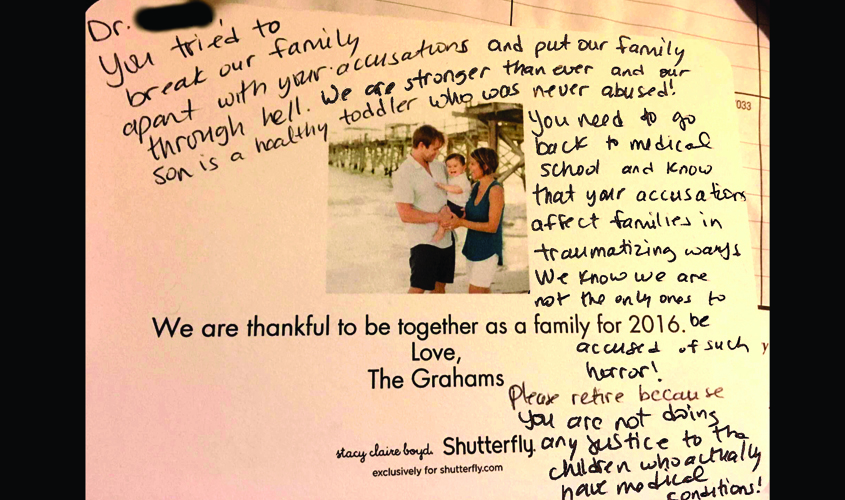 Dr.
You tried to
break our family
apart with your accusations and put our family
through hell. We are stronger than ever and our
son is a healthy toddler who was never abused!
You need to go
back to medical
school and know
that your accusations
affect families in
traumatizing ways
We know we are
not the only ones to
be
accused of such
horror!
Please retire because
you are not doing
any justice to the
children who actually
have medical
conditions!
We are thankful to be together as a family for 2016.
Love,
The Grahams
stacy claire boyd. Shutterfly.
exclusively for shutterfly.com
033
y